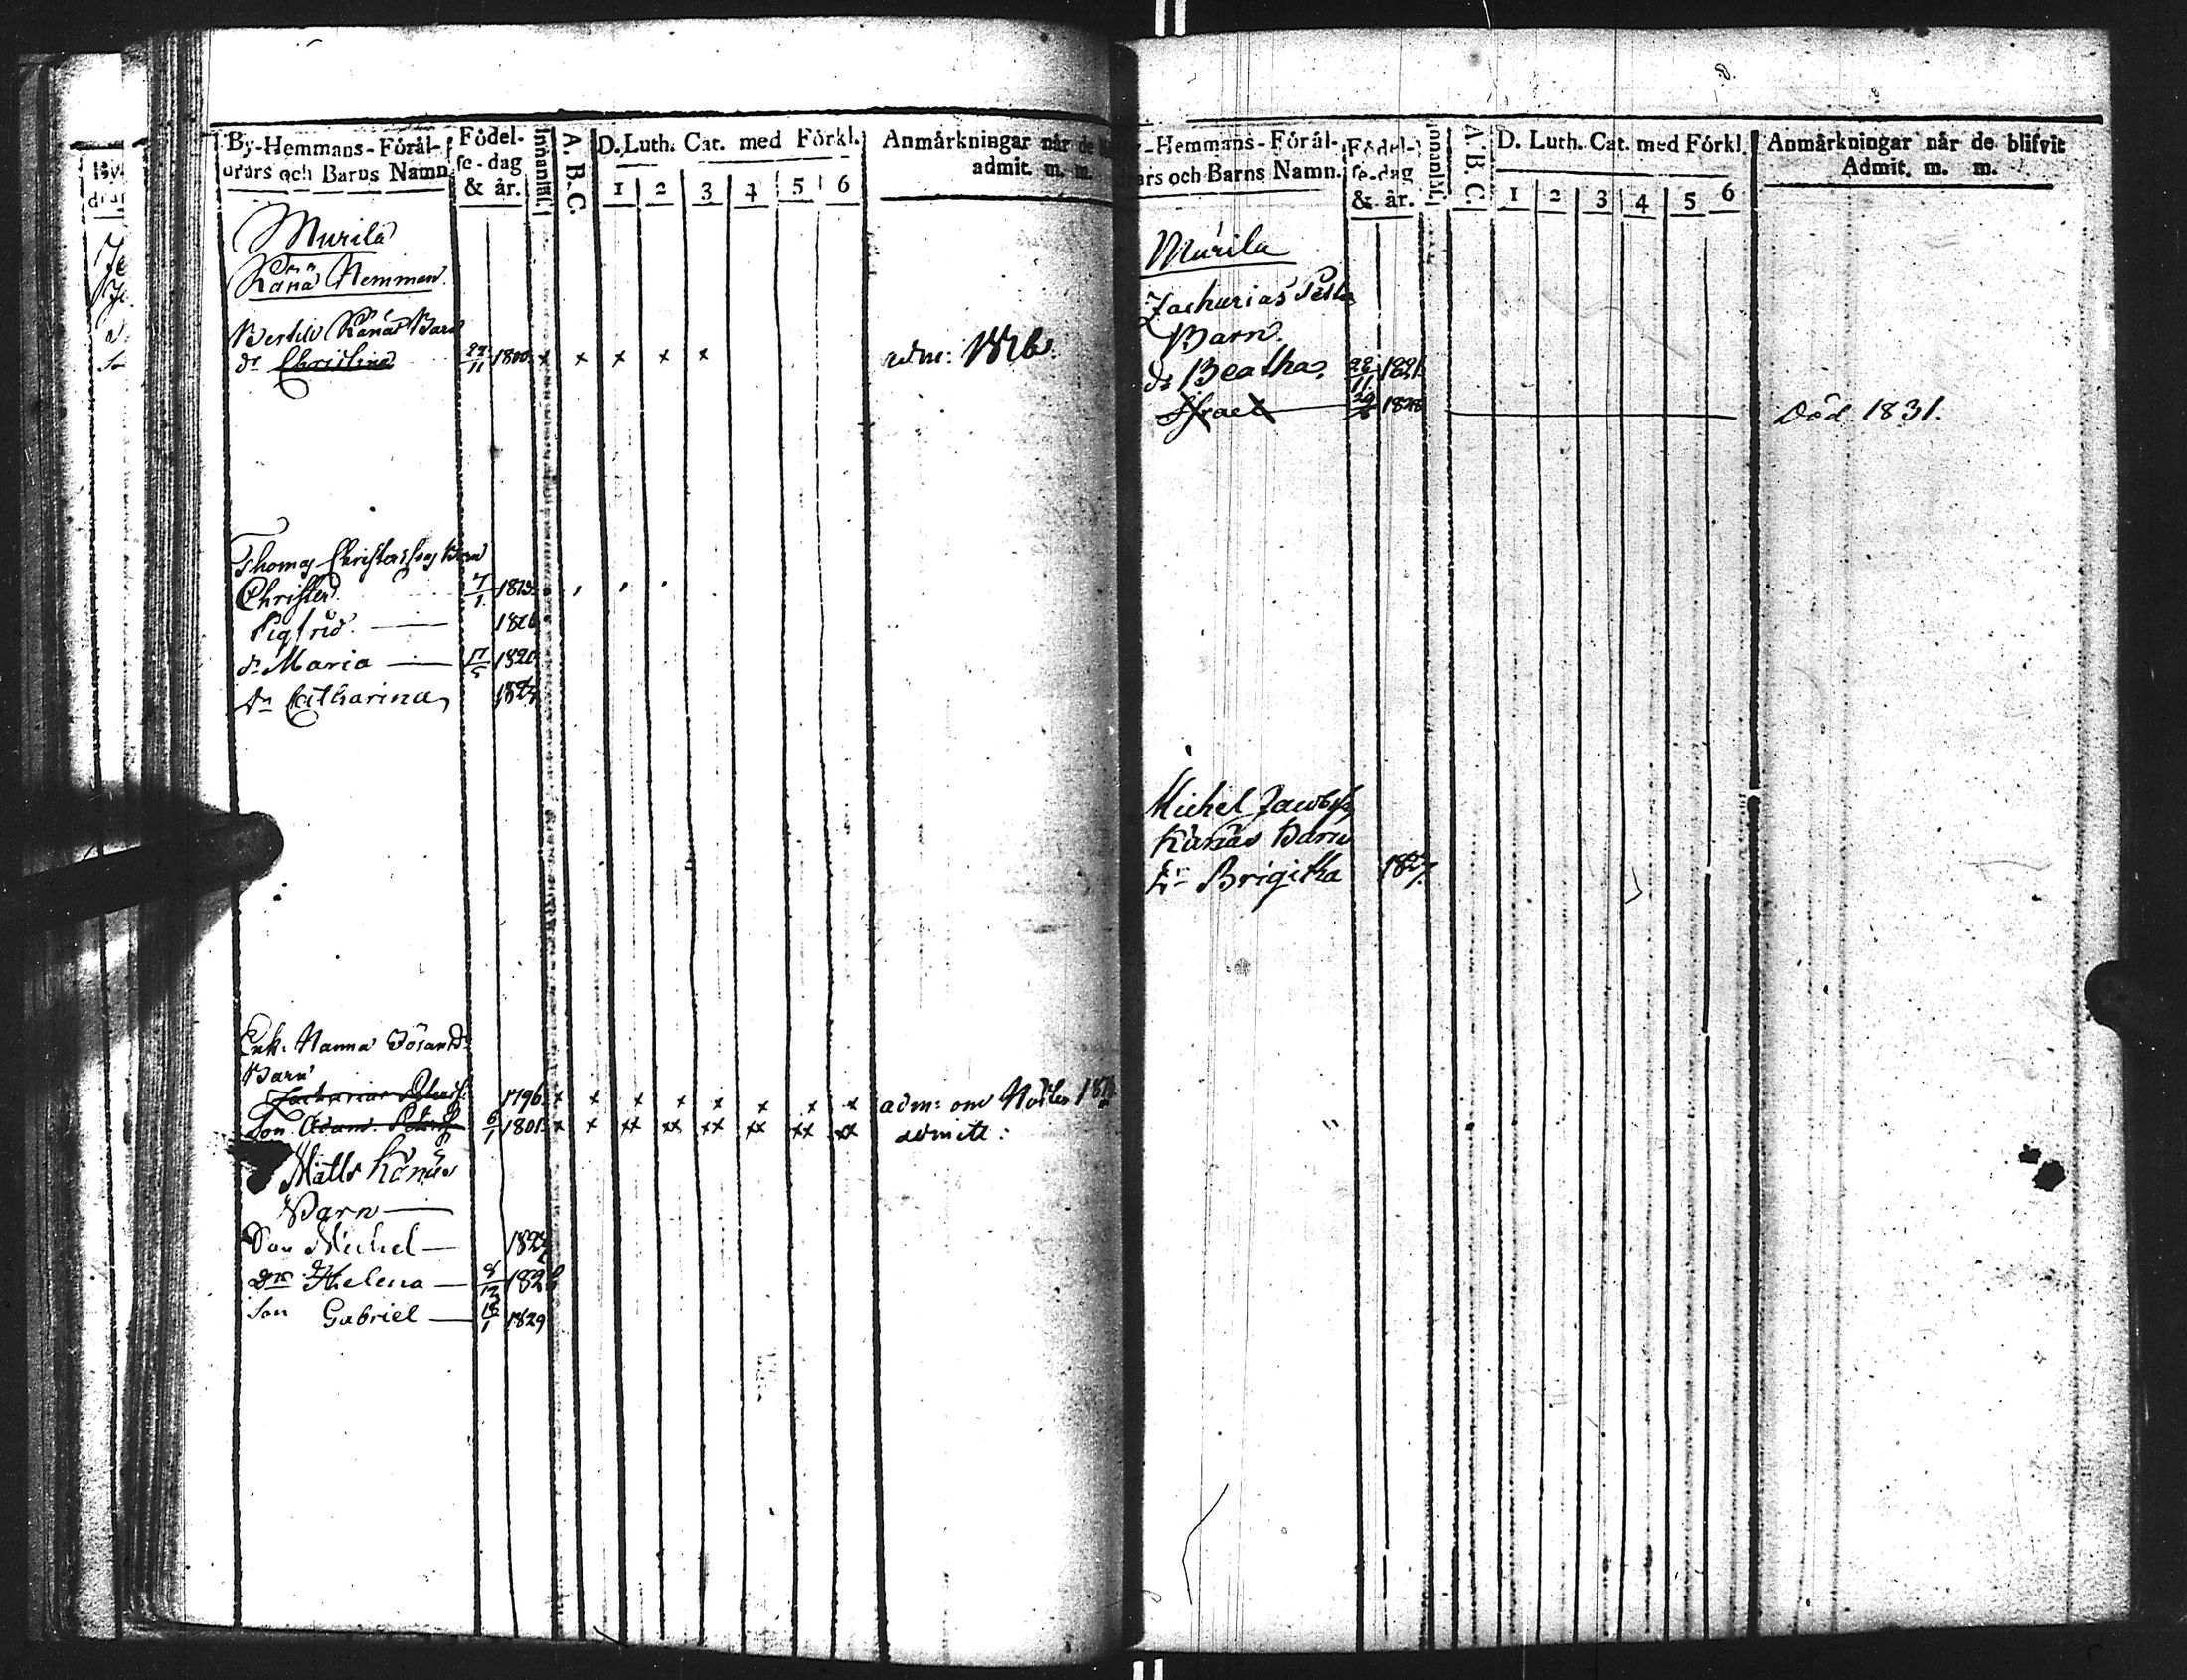 By-Hemmans-Förål-
drars och Barns Namn.
Födel-
se-dag
& år.
Innanläs.
A. B. C.
D. Luth. Cat. med Förkl.
1 2 3 4 5 6
Anmårkningar når de
admit. m. m.
Murila
Känä Hemman.
Bertils Känäs Barn
dr Christina 1800 x x x x x adm: 1816.
Thomas Christersons Barn
Christer 7/1 181
Sigfrid — 1816
dr Maria — 17/5 1820
dr Catharina 182
Enk. Hanna
Barn
Zacharias Petersf. 1796 x x x x x x x x adm: om
Son Adam Petersf 6/1 1801 x x xx xx xx xx xx xx admitt:
Matts Känäs
Barn —
Son Michel — 182
dr Helena — 8/12 182
Son Gabriel — 18/1 1829
-Hemmans-Förål-
ars och Barns Namn.
Födel-
se-dag
& år.
Innanläs.
A. B. C.
D. Luth. Cat. med Förkl.
1 2 3 4 5 6
Anmårkningar når de blifvit
Admit. m. m.
Murila
Zacharias
Barn.
dr Beatha 22/11 1821
Israel 1828 Död 1831.
Michel Jacobss
Känäs Barn
dr Brigitha 1827.